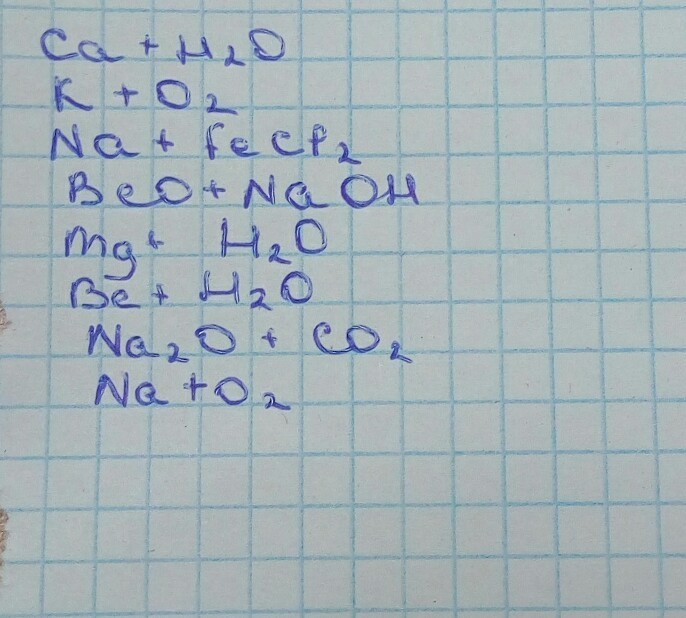 Ca + H₂O
K + O₂
Na + FeCl₂
BeO + NaOH
Mg + H₂O
Be + H₂O
Na₂O + CO₂
Na + O₂